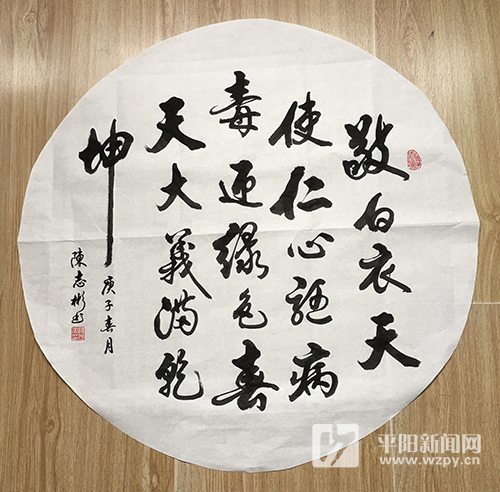 敬白衣天
使仁心驅病
毒迎綠色春
天大義滿乾
坤
庚子春月
陳志彬书
平阳新闻网
www.wzpy.cn